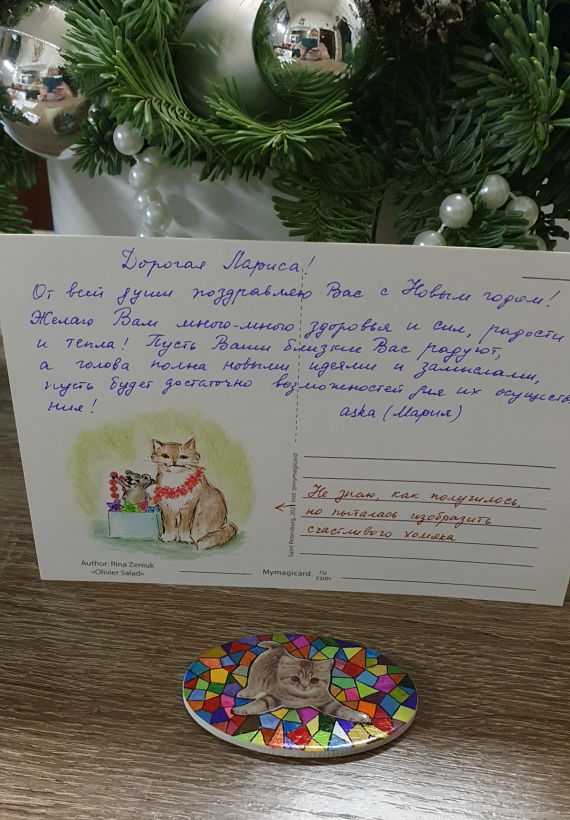 Дорогая Лариса!
От всей души поздравляю Вас с Новым годом!
Желаю Вам много-много здоровья и сил, радости
и тепла! Пусть Ваши близкие Вас радуют,
а голова полна новыми идеями и замыслами,
пусть будет достаточно возможностей для их осуществ
ния!
aska (Мария)
Не знаю, как получилось,
но пыталась изобразить
счастливого хомяка
Saint Petersburg, Inst: @mymagicard
Author: Rina Zeniuk
«Olivier Salad»
Mymagicard. ru
com